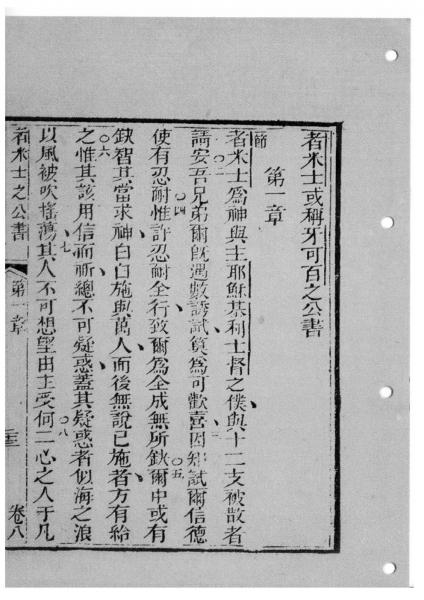 者米士或稱牙可百之公書
第一章
節
者米士爲神與主耶穌基利士督之僕與十二支被散者
請安吾兄弟爾旣遇數誘試算爲可歡喜因知試爾信德
使有忍耐惟許忍耐全行致爾爲全成無所缺爾中或有
缺智其當求神白白施與萬人而後無說已施者方有給
之惟其該用信而祈總不可疑惑蓋其疑惑者似海之浪
以風被吹搖蕩其人不可想望由主受何二心之人于凡
者米士之公書 第一章 三 卷八